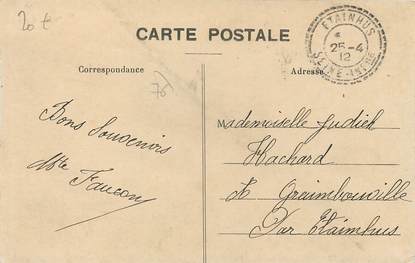 20 €
CARTE POSTALE
ETAINHUS
25-4
12
SEINE-INFRE
Correspondance
Adresse
76
Bons Souvenirs
Mlle Faucon
Mademoiselle Judith
Hachard
à Graimbouville
Par Etaimhus